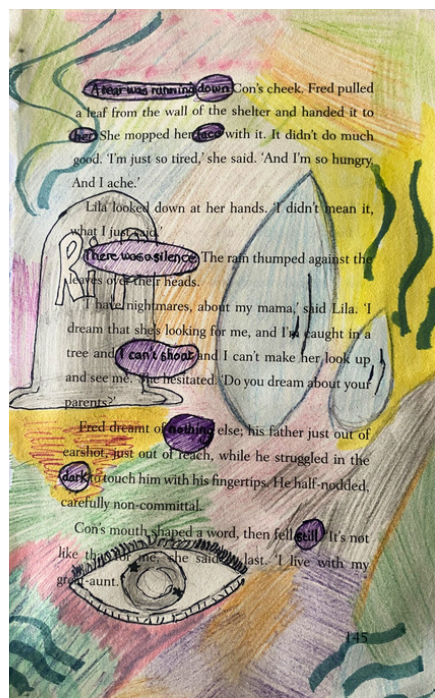 A tear was running down Con's cheek. Fred pulled
a leaf from the wall of the shelter and handed it to
her. She mopped her face with it. It didn't do much
good. 'I'm just so tired,' she said. 'And I'm so hungry.
And I ache.'
Lila looked down at her hands. 'I didn't mean it,
what I just said.'
There was a silence. The rain thumped against the
leaves over their heads.
'I have nightmares, about my mama,' said Lila. 'I
dream that she's looking for me, and I'm caught in a
tree and I can't shout and I can't make her look up
and see me.' She hesitated. 'Do you dream about your
parents?'
Fred dreamt of nothing else; his father just out of
earshot, just out of reach, while he struggled in the
dark to touch him with his fingertips. He half-nodded,
carefully non-committal.
Con's mouth shaped a word, then fell still. 'It's not
like that for me,' she said at last. 'I live with my
great-aunt.
145